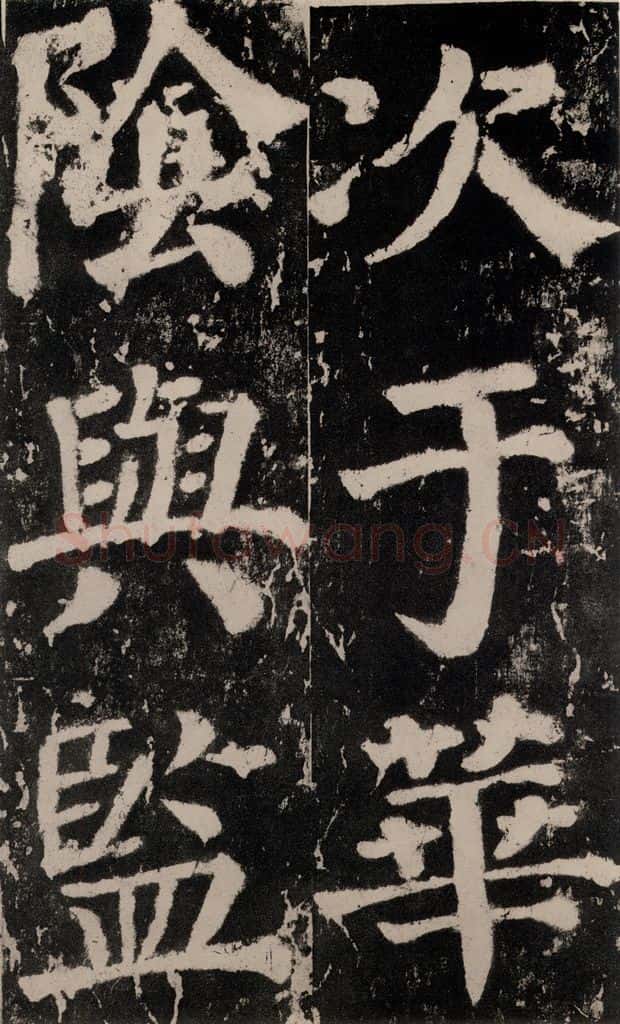 次于華
陰與監
Shufawang.CN